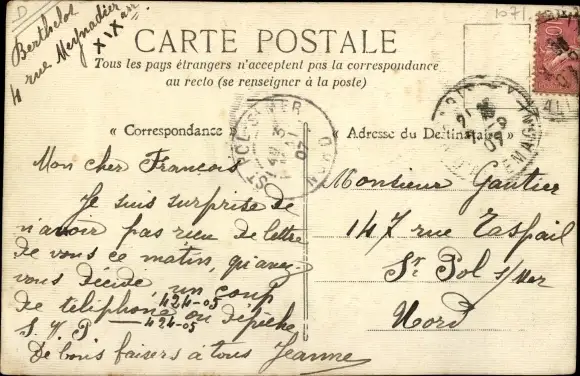 D
1071
Berthelot
4 rue Meynadier
XIX arr
CARTE POSTALE
Tous les pays étrangers n'acceptent pas la correspondance
au recto (se renseigner à la poste)
« Correspondance »
« Adresse du Destinataire »
Mon cher Francois
Je suis surprise de
n'avoir pas rien de lettre
de vous ce matin, qu'avez-
vous décidé, un coup
de téléphone 424-05 ou dépêche
S.V.P — 424-05
De bons baisers à tous Jeanne
Monsieur Gautier
147 rue Raspail
St Pol s/Mer
Nord
ST POL-S-MER
NORD
07
PARIS
07